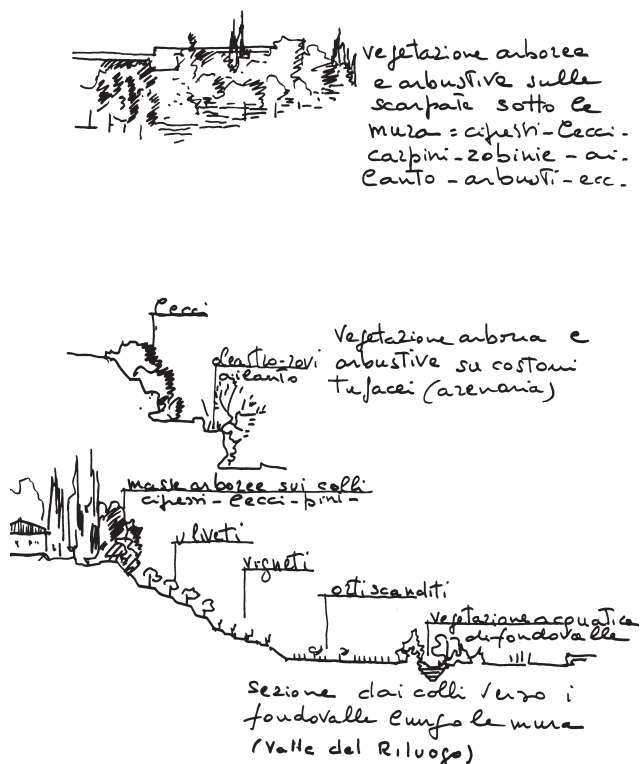 vegetazione arborea
e arbustiva sulle
scarpate sotto le
mura = cipressi - lecci -
carpini - robinie - ai-
lanto - arbusti - ecc.
lecci
oleastro - rovi
ailanto
Vegetazione arborea e
arbustive su costoni
tufacei (arenaria)
masse arboree sui colli
cipressi - lecci - pini -
uliveti
vigneti
orti scanditi
vegetazione acquatica
di fondovalle
sezione dai colli verso i
fondovalle lungo le mura
(Valle del Riluogo)